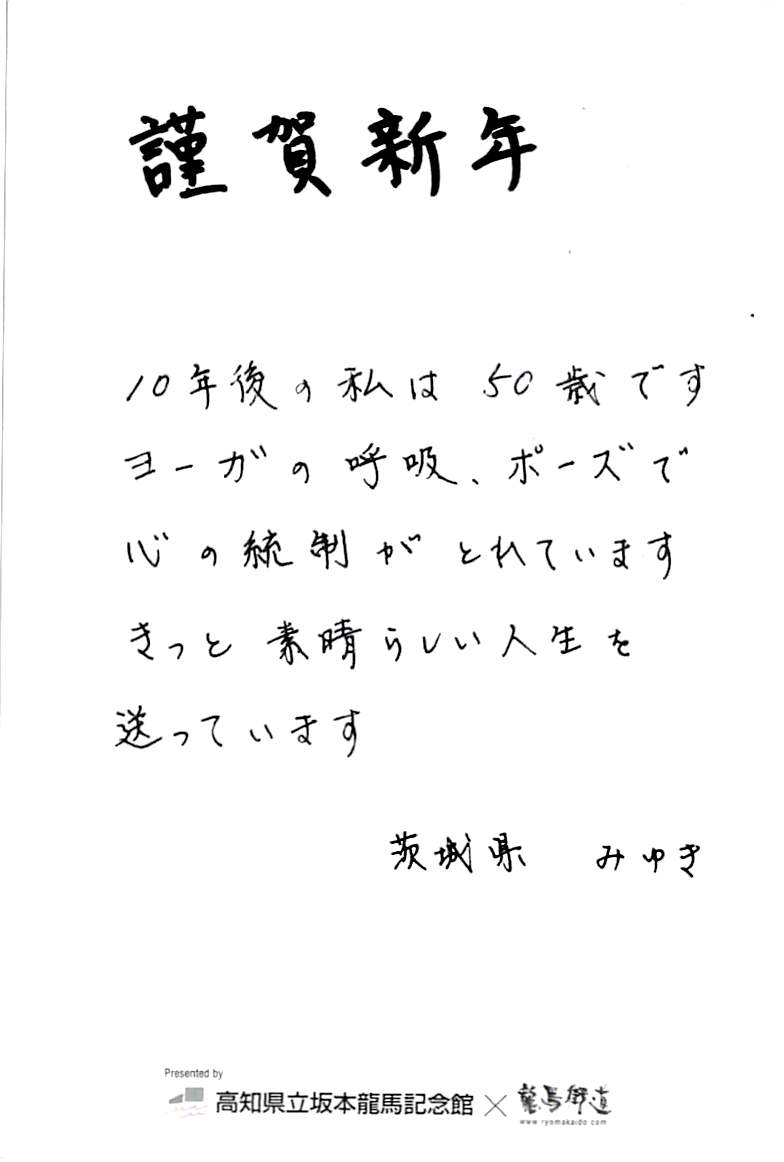 謹賀新年
10年後の私は50歳です
ヨーガの呼吸、ポーズで
心の統制がとれています
きっと素晴らしい人生を
送っています
茨城県 みゆき
Presented by
高知県立坂本龍馬記念館×龍馬街道
www.ryomakaido.com